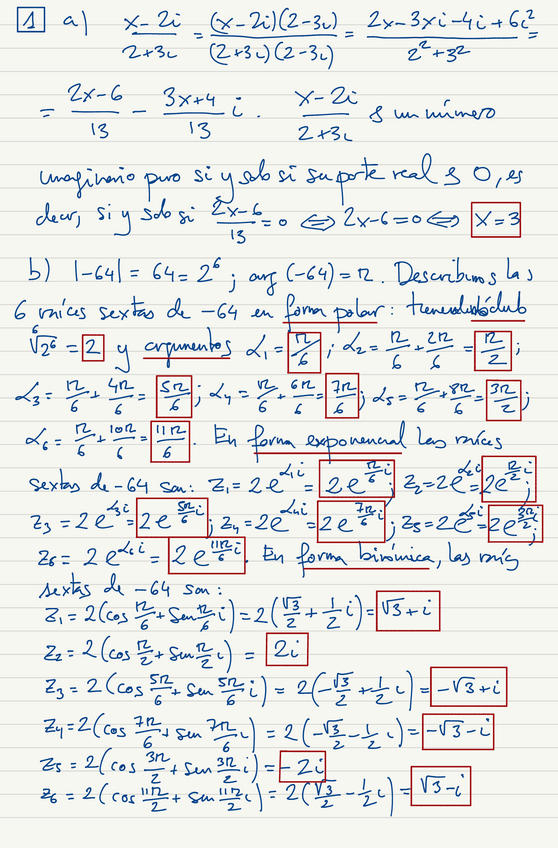 1 a) x-2i/2+3i = (x-2i)(2-3i)/(2+3i)(2-3i) = 2x-3xi-4i+6i²/2²+3² =
= 2x-6/13 - 3x+4/13 i. x-2i/2+3i es un número
imaginario puro si y solo si su parte real es 0, es
decir, si y solo si 2x-6/13 = 0 ⇔ 2x-6=0 ⇔ x=3
b) |-64| = 64 = 2⁶; arg(-64) = π. Describimos las
6 raíces sextas de -64 en forma polar: tienen módulo
⁶√2⁶ = 2 y argumentos α₁ = π/6; α₂ = π/6 + 2π/6 = π/2;
α₃ = π/6 + 4π/6 = 5π/6; α₄ = π/6 + 6π/6 = 7π/6; α₅ = π/6 + 8π/6 = 3π/2;
α₆ = π/6 + 10π/6 = 11π/6. En forma exponencial las raíces
sextas de -64 son: z₁ = 2e^{α₁i} = 2e^{π/6 i}; z₂ = 2e^{α₂i} = 2e^{π/2 i};
z₃ = 2e^{α₃i} = 2e^{5π/6 i}; z₄ = 2e^{α₄i} = 2e^{7π/6 i}; z₅ = 2e^{α₅i} = 2e^{3π/2 i};
z₆ = 2e^{α₆i} = 2e^{11π/6 i}. En forma binómica, las raíces
sextas de -64 son:
z₁ = 2(cos π/6 + sen π/6 i) = 2(√3/2 + 1/2 i) = √3+i
z₂ = 2(cos π/2 + sen π/2 i) = 2i
z₃ = 2(cos 5π/6 + sen 5π/6 i) = 2(-√3/2 + 1/2 i) = -√3+i
z₄ = 2(cos 7π/6 + sen 7π/6 i) = 2(-√3/2 - 1/2 i) = -√3-i
z₅ = 2(cos 3π/2 + sen 3π/2 i) = -2i
z₆ = 2(cos 11π/6 + sen 11π/6 i) = 2(√3/2 - 1/2 i) = √3-i